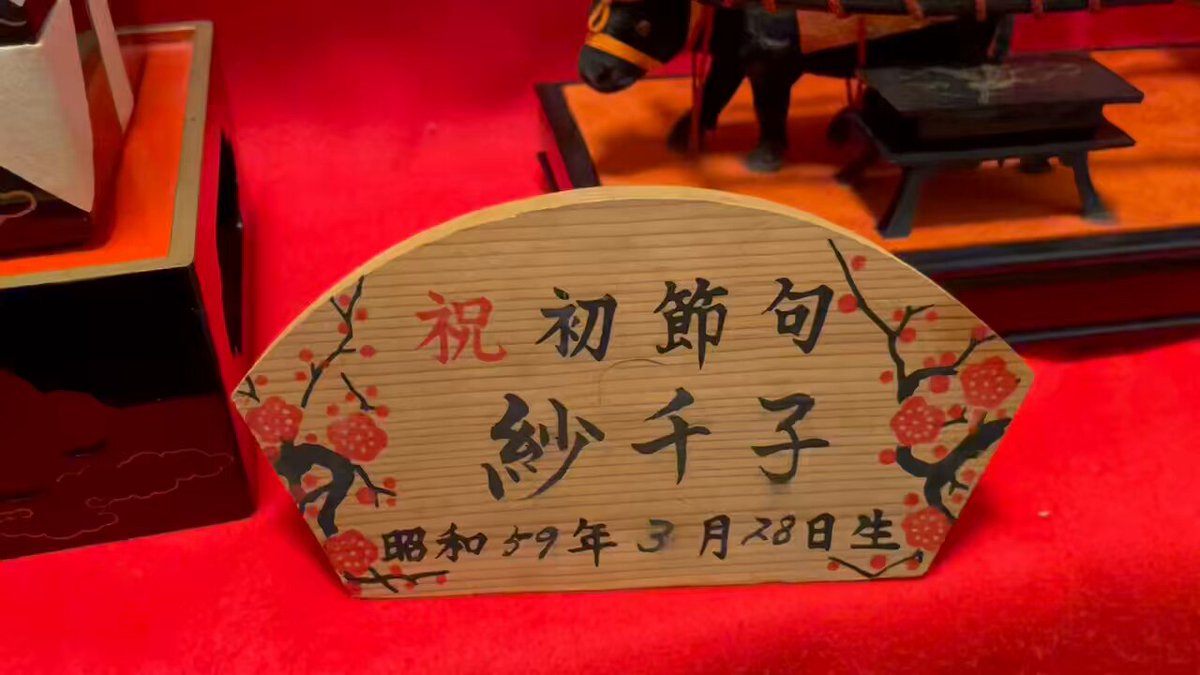 祝初節句
紗千子
昭和59年3月28日生